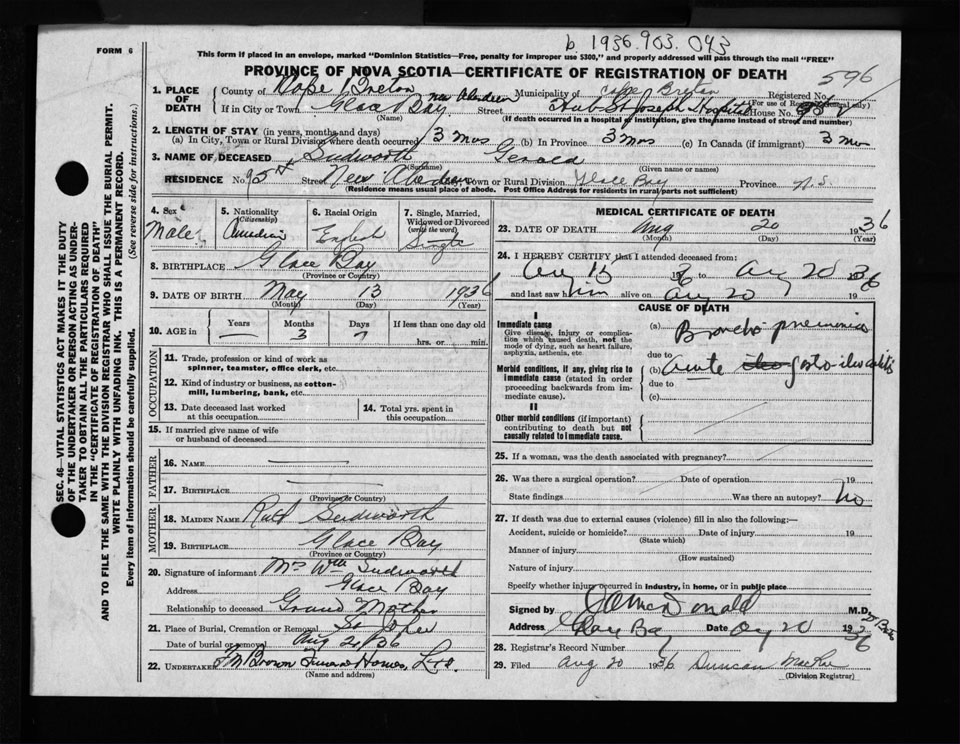 b. 1936. 903. 043
FORM 6
This form if placed in an envelope, marked "Dominion Statistics—Free, penalty for improper use $300," and properly addressed will pass through the mail "FREE"
PROVINCE OF NOVA SCOTIA—CERTIFICATE OF REGISTRATION OF DEATH
596
1. PLACE OF DEATH
County of Cape Breton Municipality of Cape Breton Registered No.
(For use of Registrar only)
If in City or Town Glace Bay New Aberdeen Street St Joseph Hospital House No.
(Name) (If death occurred in a hospital or institution, give the name instead of street and number)
2. LENGTH OF STAY (in years, months and days)
(a) In City, Town or Rural Division where death occurred 3 mos (b) In Province 3 mos (c) In Canada (if immigrant) 3 mo
3. NAME OF DECEASED Sudworth Gerald
(Surname) (Given name or names)
RESIDENCE No. 95 Street New Aberdeen City, Town or Rural Division Glace Bay Province N.S.
(Residence means usual place of abode. Post Office Address for residents in rural parts not sufficient)
4. Sex
Male
5. Nationality
(Citizenship)
Canadian
6. Racial Origin
English
7. Single, Married, Widowed or Divorced
(write the word)
Single
8. BIRTHPLACE Glace Bay
(Province or Country)
9. DATE OF BIRTH May 13 1936
(Month) (Day) (Year)
10. AGE in
Years Months Days If less than one day old
— 3 7 hrs. or min.
OCCUPATION
11. Trade, profession or kind of work as
spinner, teamster, office clerk, etc.
12. Kind of industry or business, as cotton-
mill, lumbering, bank, etc.
13. Date deceased last worked
at this occupation
14. Total yrs. spent in
this occupation
15. If married give name of wife
or husband of deceased
FATHER
16. NAME —
17. BIRTHPLACE —
(Province or Country)
MOTHER
18. MAIDEN NAME Ruth Sudworth
19. BIRTHPLACE Glace Bay
(Province or Country)
20. Signature of informant Mrs Wm Sudworth
Address Glace Bay
Relationship to deceased Grand Mother
21. Place of Burial, Cremation or Removal
Date of burial or removal Aug 21/36
22. UNDERTAKER Brown Funeral Homes, Ltd.
(Name and address)
MEDICAL CERTIFICATE OF DEATH
23. DATE OF DEATH Aug 20 1936
(Month) (Day) (Year)
24. I HEREBY CERTIFY that I attended deceased from:
Aug 15 36 to Aug 20 1936
and last saw him alive on Aug 20 19
CAUSE OF DEATH
I
Immediate cause
Give disease, injury or complication which caused death, not the mode of dying, such as heart failure, asphyxia, asthenia, etc
(a) Broncho pneumonia
due to
Morbid conditions, if any, giving rise to immediate cause (stated in order proceeding backwards from immediate cause).
(b) acute
due to
(c)
II
Other morbid conditions (if important) contributing to death but not causally related to immediate cause.
25. If a woman, was the death associated with pregnancy?
26. Was there a surgical operation? Date of operation 19
State findings Was there an autopsy? No
27. If death was due to external causes (violence) fill in also the following:—
Accident, suicide or homicide? Date of injury 19
(State which)
Manner of injury
(How sustained)
Nature of injury
Specify whether injury occurred in industry, in home, or in public place
Signed by McDonald M.D.
Address Glace Bay Date Aug 20 1936
28. Registrar's Record Number
29. Filed Aug 20 1936 Duncan MacRae
(Division Registrar)
SEC. 46—VITAL STATISTICS ACT MAKES IT THE DUTY
OF THE UNDERTAKER OR PERSON ACTING AS UNDER-
TAKER TO OBTAIN ALL THE PARTICULARS REQUIRED
IN THE "CERTIFICATE OF REGISTRATION OF DEATH"
AND TO FILE THE SAME WITH THE DIVISION REGISTRAR WHO SHALL ISSUE THE BURIAL PERMIT.
WRITE PLAINLY WITH UNFADING INK. THIS IS A PERMANENT RECORD.
Every item of information should be carefully supplied. (See reverse side for instructions.)